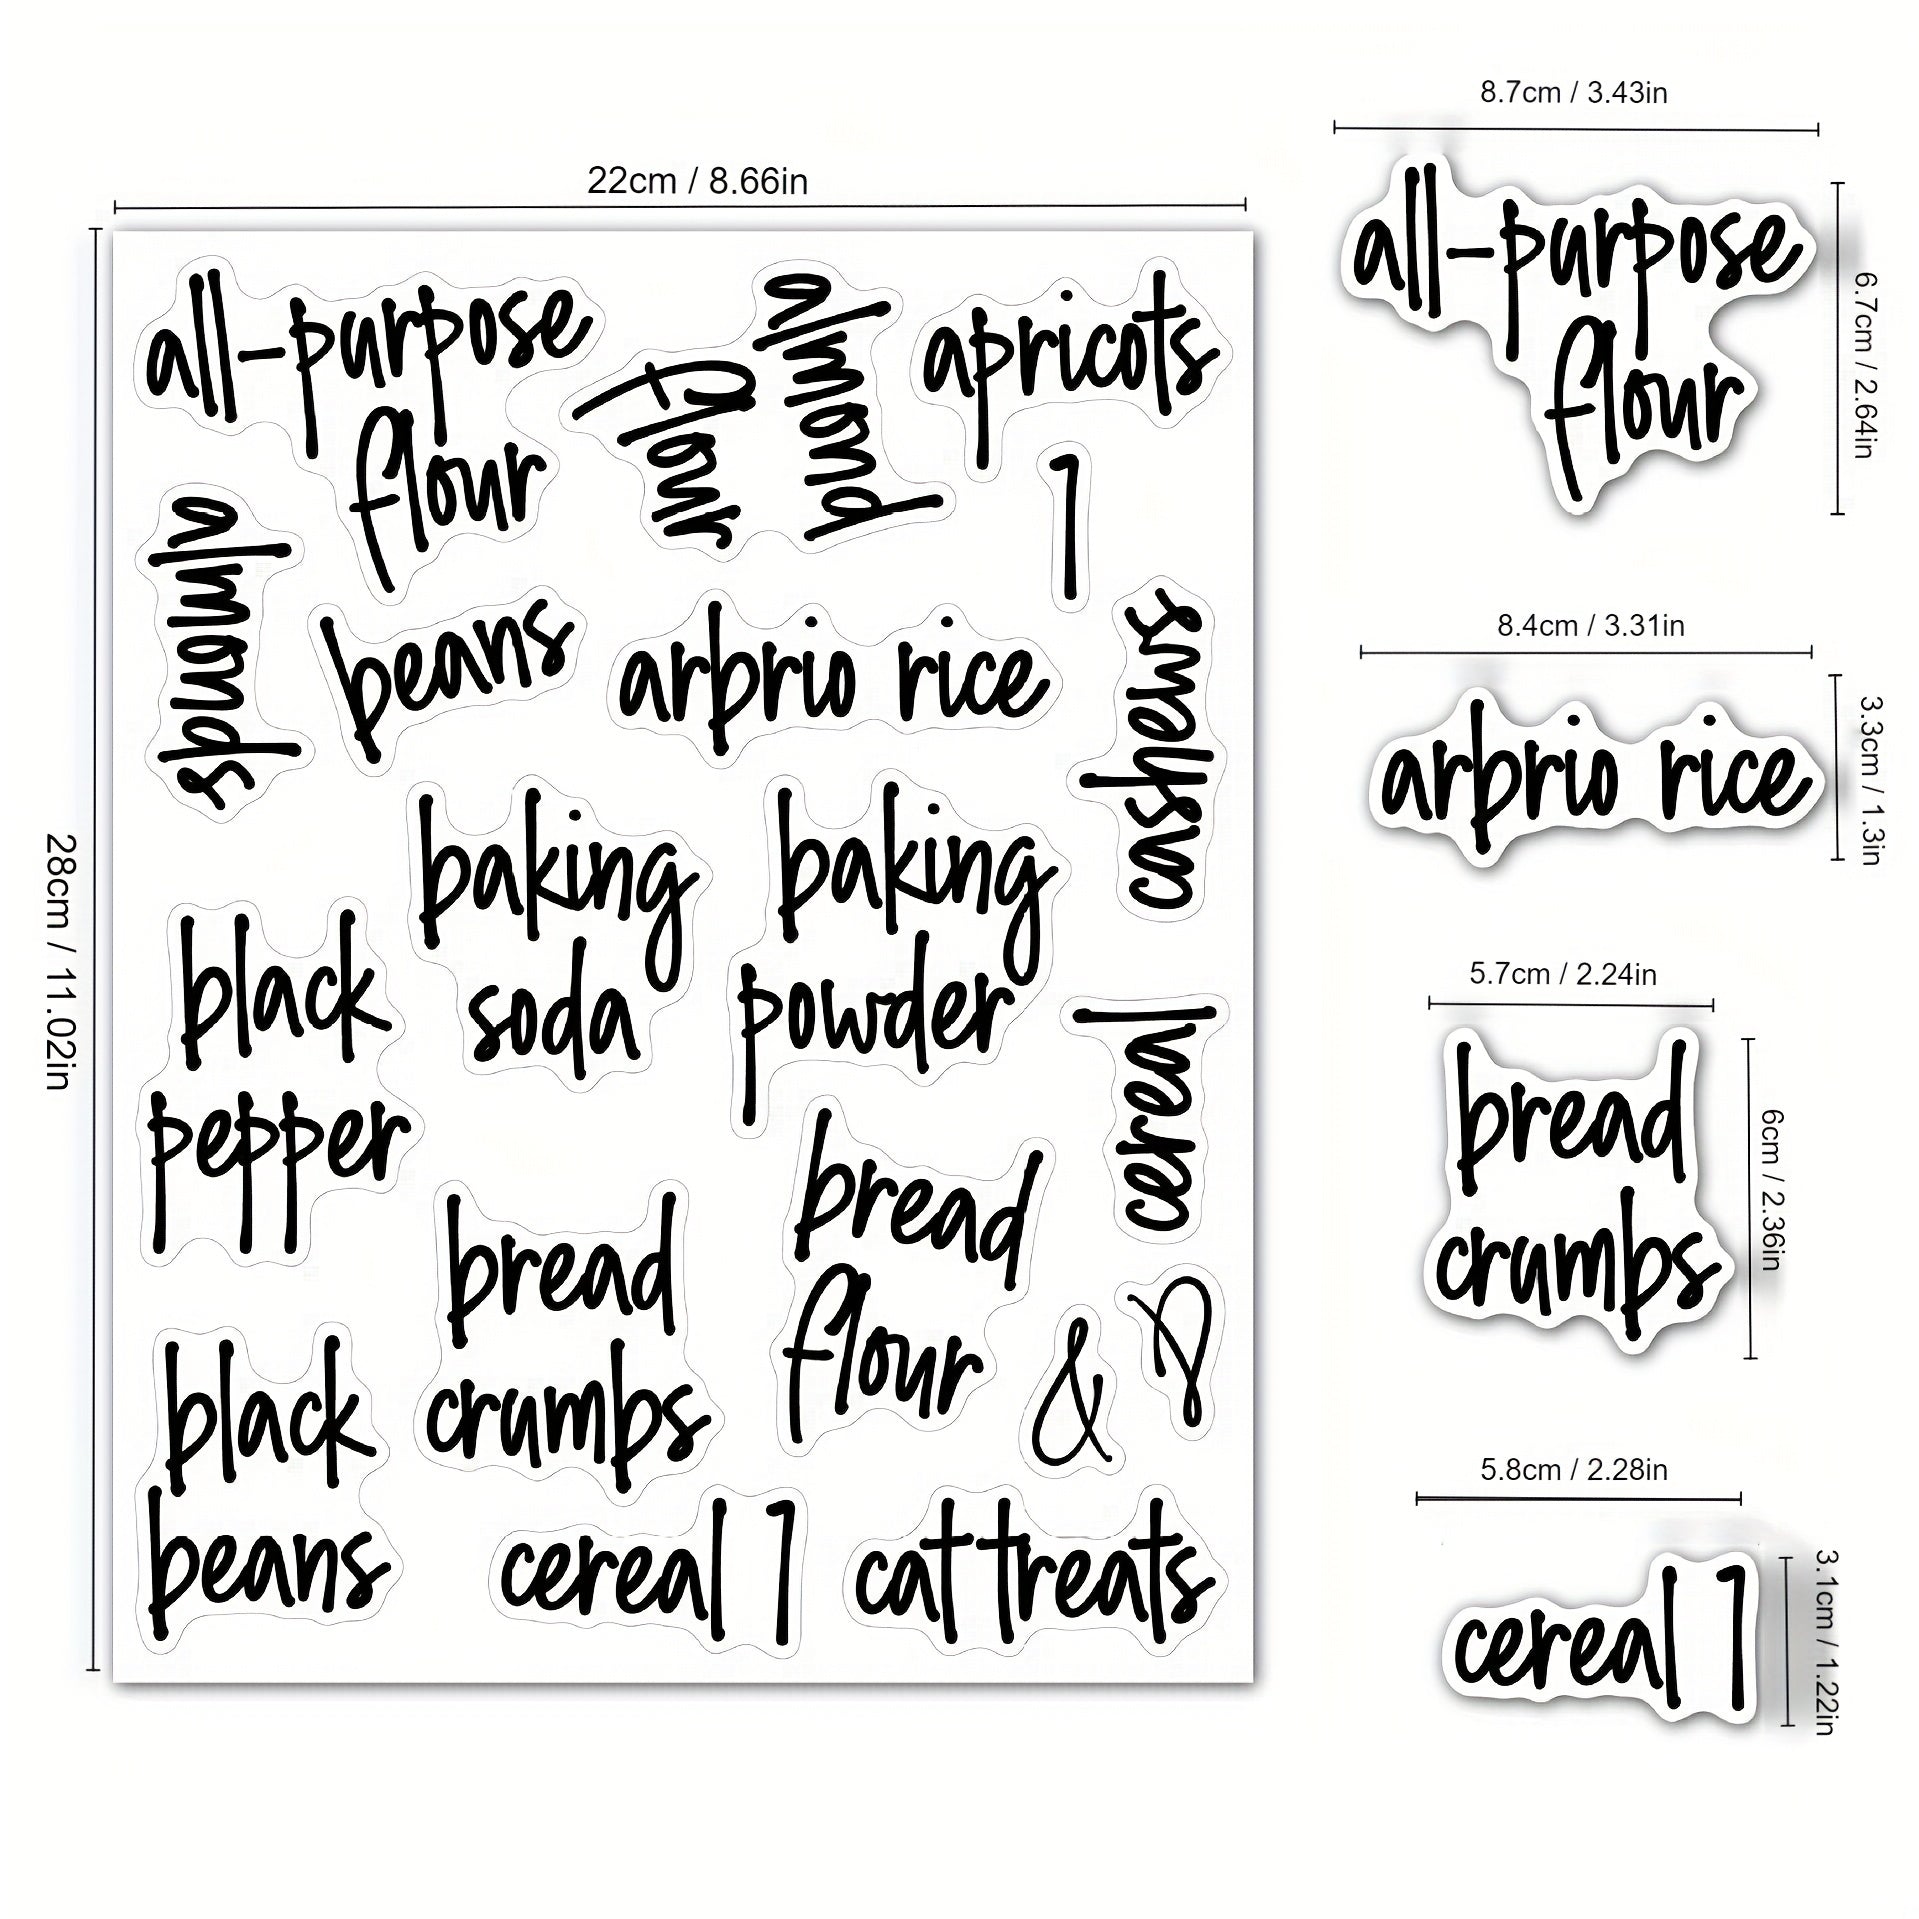 22cm / 8.66in
28cm / 11.02in
all-purpose
flour
almond
flour
apricots
1
almonds
beans
arbrio rice
cashews
baking
soda
baking
powder
black
pepper
cereal
bread
crumbs
bread
flour
&
black
beans
cereal 1
cat treats
8.7cm / 3.43in
all-purpose
flour
6.7cm / 2.64in
8.4cm / 3.31in
arbrio rice
3.3cm / 1.3in
5.7cm / 2.24in
bread
crumbs
6cm / 2.36in
5.8cm / 2.28in
cereal 1
3.1cm / 1.22in